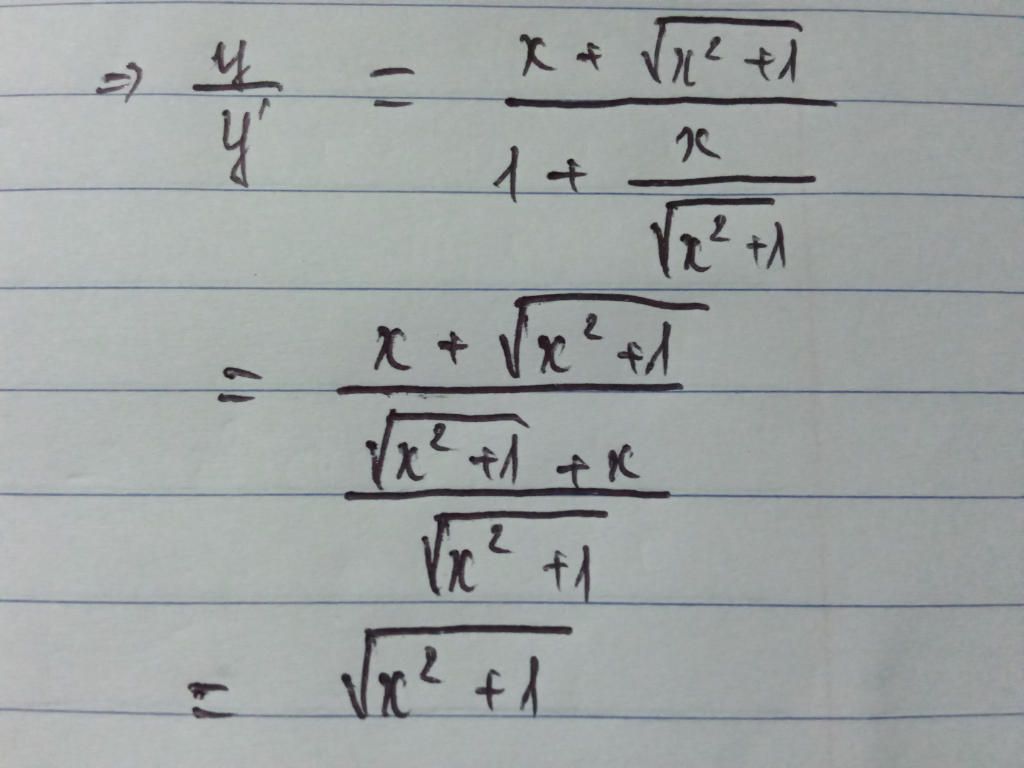 ⇒ y/y' = (x + √(x² + 1)) / (1 + x/√(x² + 1))
= (x + √(x² + 1)) / ((√(x² + 1) + x) / √(x² + 1))
= √(x² + 1)